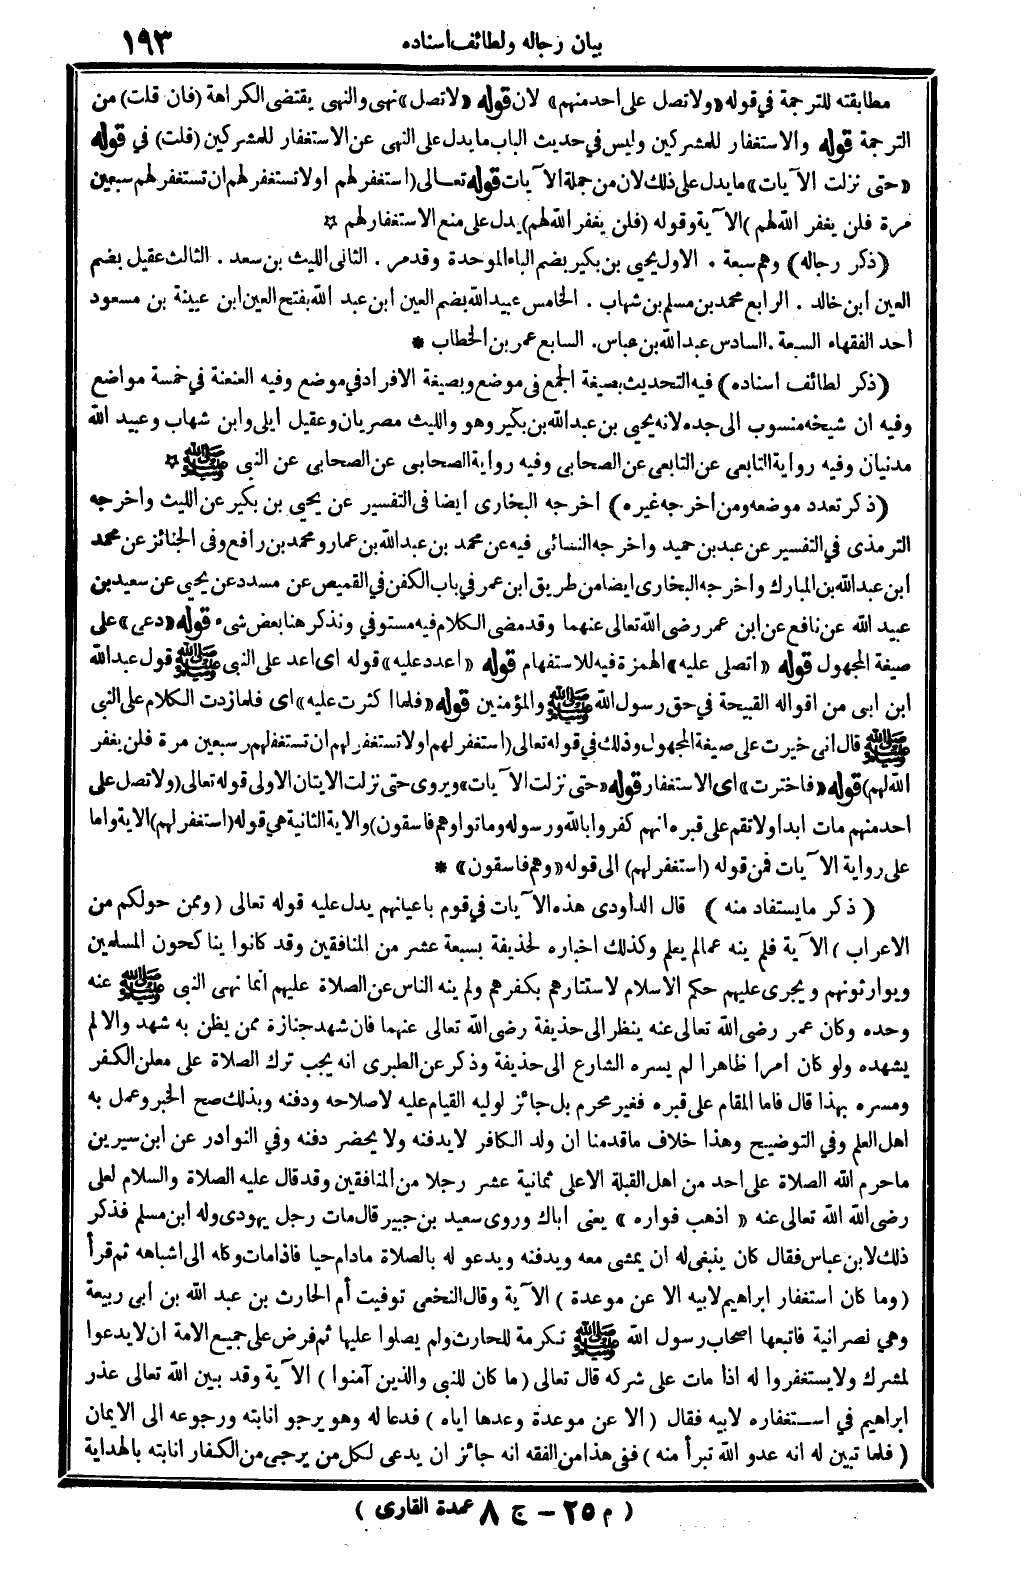 بيان رجاله ولطائف اسناده ١٩٣
مطابقته للترجمة في قوله «ولا تصل على احد منهم» لان قوله «لا تصل» نهى والنهى يقتضى الكراهة (فان قلت) من
الترجمة قوله والاستغفار للمشركين وليس في حديث الباب ما يدل على النهى عن الاستغفار للمشركين (قلت) في قوله
«حتى نزلت الآيات» ما يدل على ذلك لان من جملة الآيات قوله تعالى (استغفر لهم اولا تستغفر لهم ان تستغفر لهم سبعين
مرة فلن يغفر الله لهم) الآية وقوله (فلن يغفر الله لهم) يدل على منع الاستغفار لهم ☆
(ذكر رجاله) وهم سبعة . الاول يحيى بن بكير بضم الباء الموحدة وقد مر . الثانى الليث بن سعد . الثالث عقيل بضم
العين ابن خالد . الرابع محمد بن مسلم بن شهاب . الخامس عبيد الله بضم العين ابن عبد الله بفتح العين ابن عيينة بن مسعود
أحد الفقهاء السبعة . السادس عبد الله بن عباس . السابع عمر بن الخطاب *
(ذكر لطائف اسناده) فيه التحديث بصيغة الجمع فى موضع وبصيغة الافراد في موضع وفيه العنعنة في خمسة مواضع
وفيه ان شيخه منسوب الى جده لانه يحيى بن عبد الله بن بكير وهو والليث مصريان وعقيل ايلى وابن شهاب وعبيد الله
مدنيان وفيه رواية التابعى عن التابعى عن الصحابى وفيه رواية الصحابى عن الصحابى عن النبى ﷺ ☆
(ذكر تعدد موضعه ومن اخرجه غيره) اخرجه البخارى ايضا فى التفسير عن يحيى بن بكير عن الليث واخرجه
الترمذى في التفسير عن عبد بن حميد واخرجه النسائى فيه عن محمد بن عبد الله بن عمار ومحمد بن رافع وفى الجنائز عن محمد
ابن عبد الله بن المبارك واخرجه البخارى ايضا من طريق ابن عمر في باب الكفن في القميص عن مسدد عن يحيى عن سعيد بن
عبيد الله عن نافع عن ابن عمر رضى الله تعالى عنهما وقد مضى الكلام فيه مستوفي ونذكر هنا بعض شىء قوله «دعى» على
صيغة المجهول قوله «اتصلى عليه» الهمزة فيه للاستفهام قوله «اعدد عليه» قوله اى اعد على النبى ﷺ قول عبد الله
ابن ابى من اقواله القبيحة في حق رسول الله ﷺ والمؤمنين قوله «فلما اكثرت عليه» اى فلما زدت الكلام على النبى
ﷺ قال انى خيرت على صيغة المجهول وذلك في قوله تعالى (استغفر لهم اولا تستغفر لهم ان تستغفر لهم سبعين مرة فلن يغفر
الله لهم) قوله «فاخترت» اى الاستغفار قوله «حتى نزلت الآيات» ويروى حتى نزلت الايتان الاولى قوله تعالى (ولا تصل على
احد منهم مات ابدا ولا تقم على قبره انهم كفروا بالله ورسوله وماتوا وهم فاسقون) والاية الثانية هى قوله (استغفر لهم) الاية واما
على رواية الآيات فمن قوله (استغفر لهم) الى قوله «وهم فاسقون» *
(ذكر ما يستفاد منه) قال الداودى هذه الآيات في قوم باعيانهم يدل عليه قوله تعالى (وممن حولكم من
الاعراب) الآية فلم ينه عما لم يعلم وكذلك اخباره لحذيفة بسبعة عشر من المنافقين وقد كانوا يناكحون المسلمين
ويوارثونهم ويجرى عليهم حكم الاسلام لاستتارهم بكفرهم ولم ينه الناس عن الصلاة عليهم انما نهى النبى ﷺ عنه
وحده وكان عمر رضى الله تعالى عنه ينظر الى حذيفة رضى الله تعالى عنهما فان شهد جنازة ممن يظن به شهد والا لم
يشهده ولو كان امرا ظاهرا لم يسره الشارع الى حذيفة وذكر عن الطبرى انه يجب ترك الصلاة على معلن الكفر
ومسره بهذا قال فاما المقام على قبره فغير محرم بل جائز لوليه القيام عليه لاصلاحه ودفنه وبذلك صح الخبر وعمل به
اهل العلم وفي التوضيح وهذا خلاف ما قدمنا ان ولد الكافر لا يدفنه ولا يحضر دفنه وفي النوادر عن ابن سيرين
ما حرم الله الصلاة على احد من اهل القبلة الا على ثمانية عشر رجلا من المنافقين وقد قال عليه الصلاة والسلام لعلى
رضى الله تعالى عنه «اذهب فواره» يعنى اباك وروى سعيد بن جبير قال مات رجل يهودى وله ابن مسلم فذكر
ذلك لابن عباس فقال كان ينبغى له ان يمشى معه ويدفنه ويدعو له بالصلاة مادام حيا فاذا مات وكله الى اشباهه ثم قرأ
(وما كان استغفار ابراهيم لابيه الا عن موعدة) الآية وقال النخعى توفيت أم الحارث بن عبد الله بن أبى ربيعة
وهي نصرانية فاتبعها اصحاب رسول الله ﷺ تكرمة للحارث ولم يصلوا عليها ثم فرض على جميع الامة ان لا يدعوا
لمشرك ولا يستغفروا له اذا مات على شركه قال تعالى (ما كان للنبى والذين آمنوا) الآية وقد بين الله تعالى عذر
ابراهيم في استغفاره لابيه فقال (الا عن موعدة وعدها اياه) فدعا له وهو يرجو انابته ورجوعه الى الايمان
(فلما تبين له انه عدو الله تبرأ منه) ففى هذا من الفقه انه جائز ان يدعى لكل من يرجى من الكفار انابته بالهداية
(م ٢٥ – ج ٨ عمدة القارى)